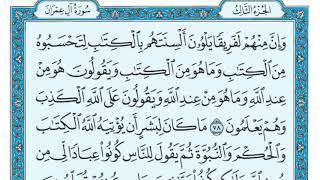 الجزء الثالث
سورة آل عمران
وَإِنَّ مِنْهُمْ لَفَرِيقًا يَلْوُونَ أَلْسِنَتَهُم بِالْكِتَٰبِ لِتَحْسَبُوهُ
مِنَ الْكِتَٰبِ وَمَا هُوَ مِنَ الْكِتَٰبِ وَيَقُولُونَ هُوَ مِنْ
عِندِ اللَّهِ وَمَا هُوَ مِنْ عِندِ اللَّهِ وَيَقُولُونَ عَلَى اللَّهِ الْكَذِبَ
وَهُمْ يَعْلَمُونَ ٧٨ مَا كَانَ لِبَشَرٍ أَن يُؤْتِيَهُ اللَّهُ الْكِتَٰبَ
وَالْحُكْمَ وَالنُّبُوَّةَ ثُمَّ يَقُولَ لِلنَّاسِ كُونُوا عِبَادًا لِّي مِن